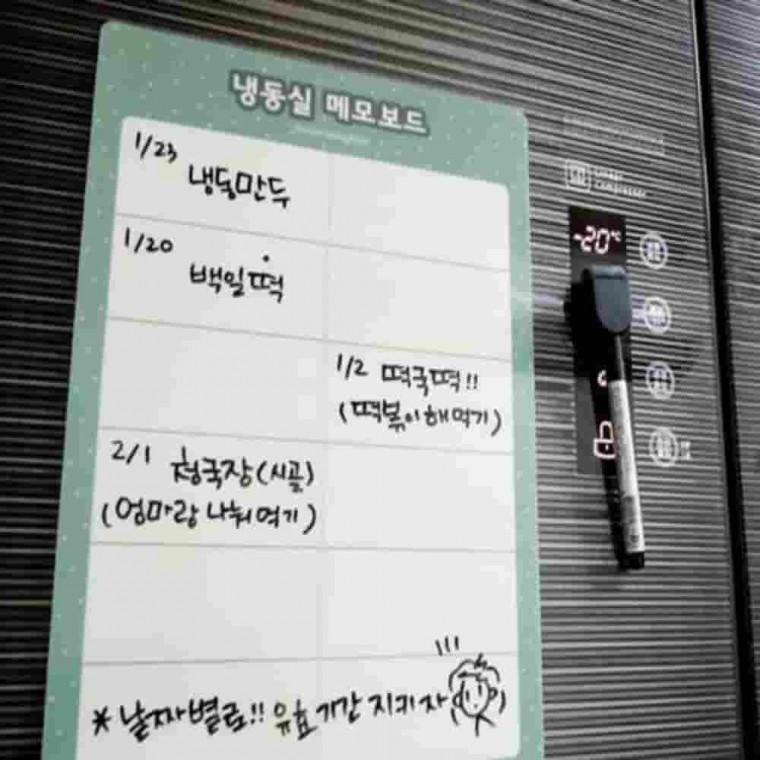 냉동실 메모보드
1/23
냉동만두
1/20
백일떡
1/2 떡국떡!!
(떡볶이해먹기)
2/1 청국장(시골)
(엄마랑 나눠먹기)
* 날짜별로!! 유효기간 지키자
-20°C